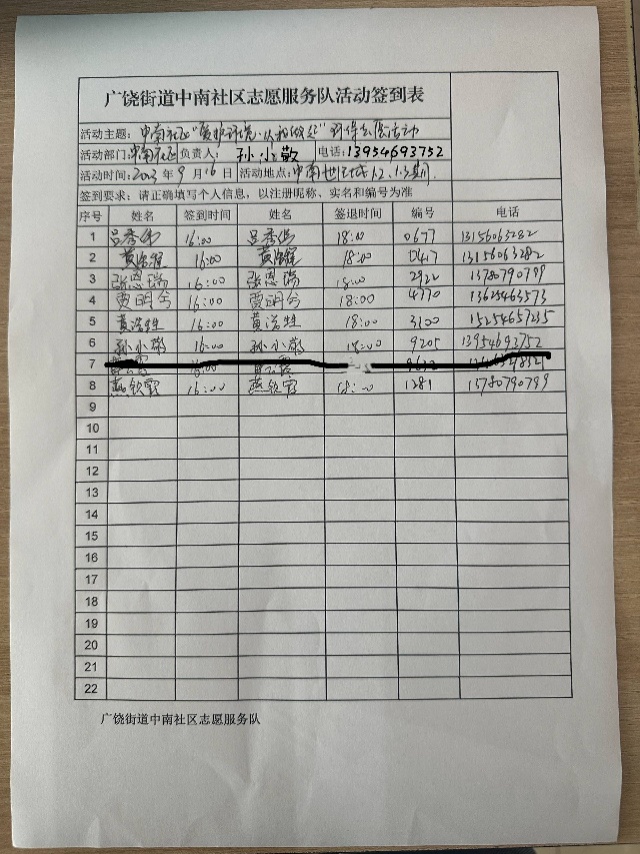 广饶街道中南社区志愿服务队活动签到表
活动主题：中南社区“爱护环境·从我做起”环保公益活动
活动部门：中南社区 负责人： 孙小敬 电话：13954693752
活动时间：2023年9月16日 活动地点：中南世纪城1.2.3期
签到要求：请正确填写个人信息，以注册昵称、实名和编号为准
序号 姓名 签到时间 姓名 签退时间 编号 电话
1 吕秀伟 16:00 吕秀伟 18:00 0677 13156063282
2 黄浩程 16:00 黄浩程 18:00 0417 13156063282
3 张恩瑞 16:00 张恩瑞 18:00 2922 13780790799
4 贾明今 16:00 贾明今 18:00 4770 13625463573
5 黄浩胜 16:00 黄浩胜 18:00 3100 15254657235
6 孙小敬 16:00 孙小敬 18:00 9205 13954693752
7
8 燕钦 16:00 燕钦 18:00 1281 15780790799
9
10
11
12
13
14
15
16
17
18
19
20
21
22
广饶街道中南社区志愿服务队